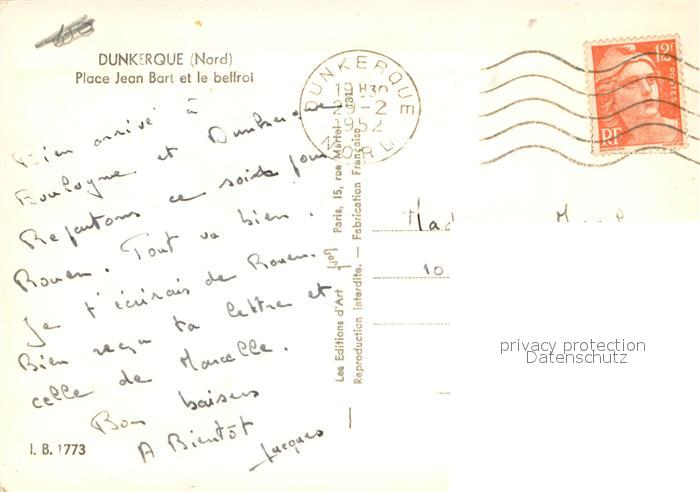 DUNKERQUE (Nord)
Place Jean Bart et le beffroi
Bien arrivé à
Boulogne et Dunkerque
Repartons ce soir pour
Rouen. Tout va bien.
Je t'écrirais de Rouen.
Bien reçu ta lettre et
celle de Marcelle.
Bons baisers
A Bientôt
Jacques
I. B. 1773
Les Editions d'Art Yvon Paris, 15, rue Martel
Reproduction interdite. — Fabrication Française
DUNKERQUE
19H30
9-2
1952
NORD
12F
POSTES
RF
Mad
10
privacy protection
Datenschutz